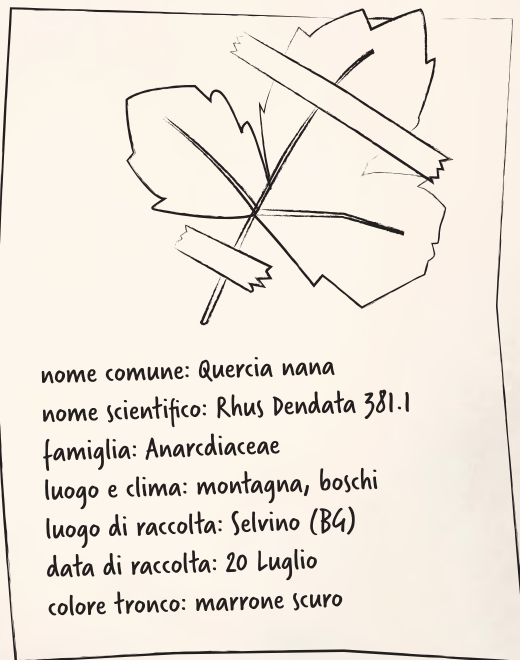 nome comune: Quercia nana
nome scientifico: Rhus Dendata 381.1
famiglia: Anarcdiaceae
luogo e clima: montagna, boschi
luogo di raccolta: Selvino (BG)
data di raccolta: 20 Luglio
colore tronco: marrone scuro